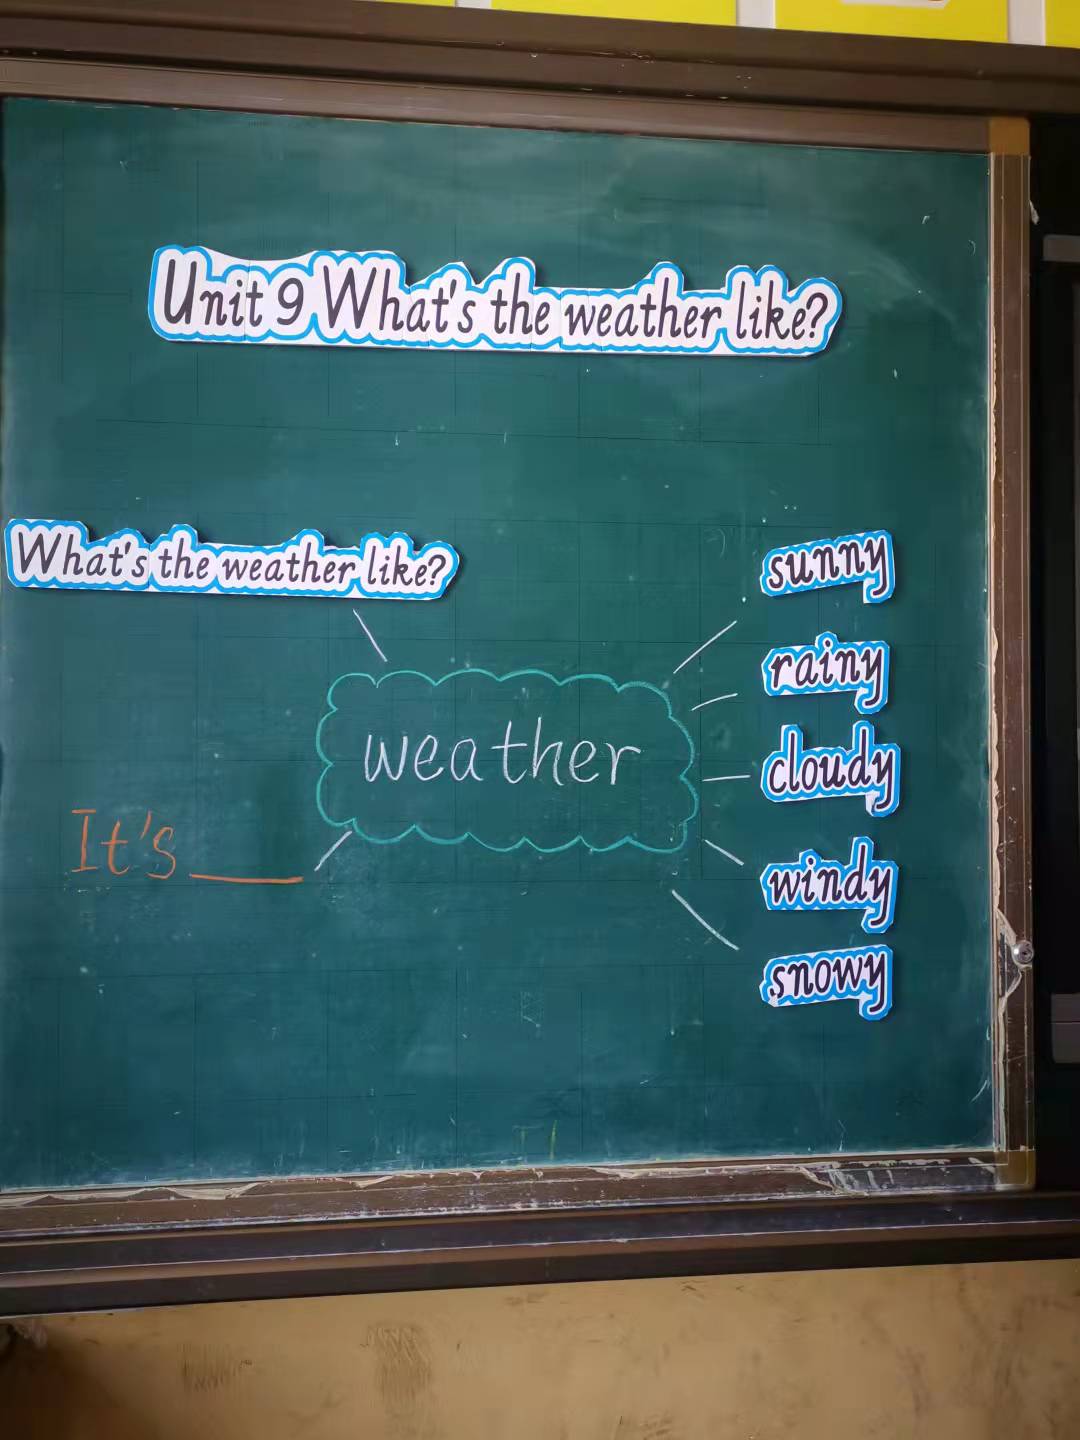 Unit 9 What's the weather like?
What's the weather like?
sunny
rainy
cloudy
weather
It's ___
windy
snowy